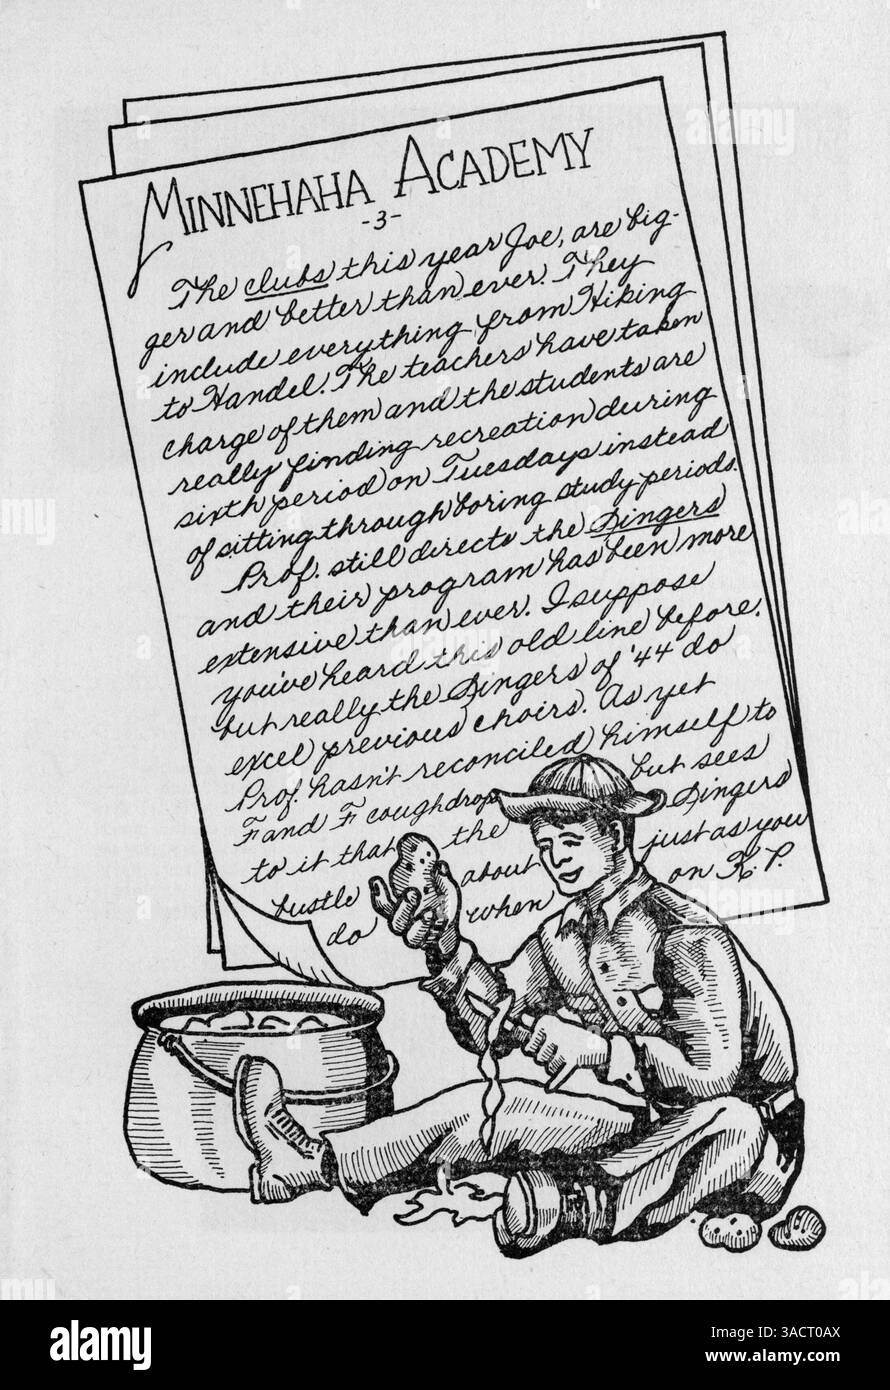 MINNEHAHA ACADEMY
-3-
The clubs this year Joe, are big-
ger and better than ever. They
include everything from Hiking
to Handel. The teachers have taken
charge of them and the students are
really finding recreation during
sixth period on Tuesdays instead
of sitting through boring study periods.
Prof. still directs the Singers
and their program has been more
extensive than ever. I suppose
you've heard this old line before,
but really the Singers of '44 do
excel previous choirs. As yet
Prof. hasn't reconciled himself to
F and F coughdrops but sees
to it that the Singers
bustle about just as you
do when on K.P.
alamy
Image ID: 3ACT0AX
www.alamy.com